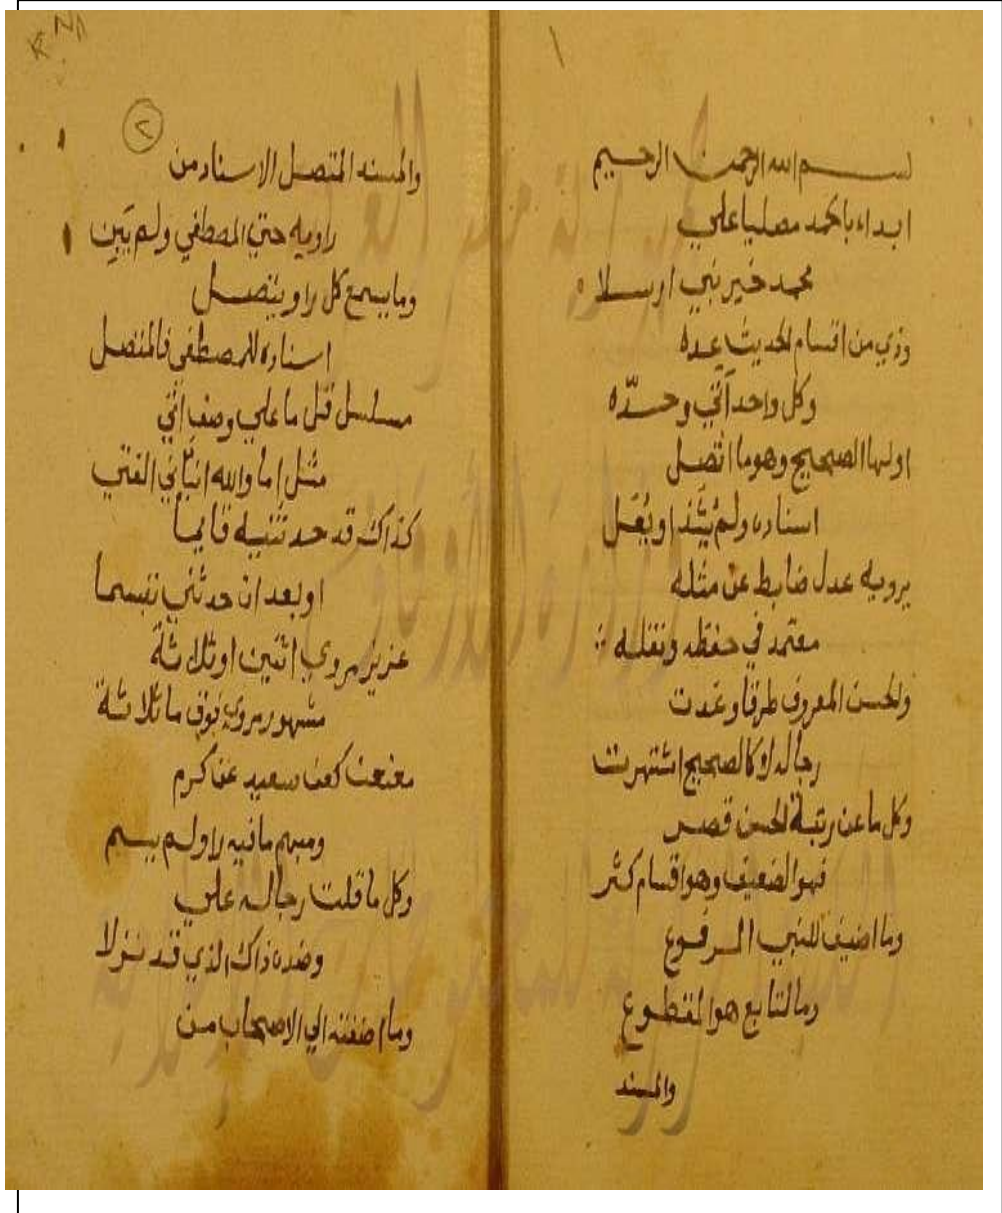 ١
بسم الله الرحمن الرحيم
ابداء بالحمد مصليا علي
محمد خير نبي ارسلا
وذي من اقسام الحديث عده
وكل واحد اتي وحدّه
اولها الصحيح وهو ما اتصل
اسناده ولم يُشَذ او يُعَل
يرويه عدل ضابط عن مثله
معتمد في ضبطه ونقله
والحسن المعروف طرقا وغدت
رجاله لا كالصحيح اشتهرت
وكل ما عن رتبة الحسن قصر
فهو الضعيف وهو اقسام كثر
وما اضيف للنبي المرفوع
وما لتابع هو المقطوع
والمسند
٢
والمسند المتصل الاسناد من
راويه حتي المصطفي ولم يَبِن
وما يسمع كل راو يتصل
اسناده للمصطفي فالمتصل
مسلسل قل ما علي وصف اتي
مثل اما والله انباني الفتي
كذاك قد حدثنيه قايما
او بعد ان حدثني تبسما
عزيز مروي اثنين او ثلاثة
مشهور مروي فوق ما ثلاثة
معنعن كعن سعيد عن كرم
ومبهم ما فيه راو لم يسم
وكل ما قلت رجاله علي
وضده ذاك الذي قد نزلا
وما اضفته الي الاصحاب من